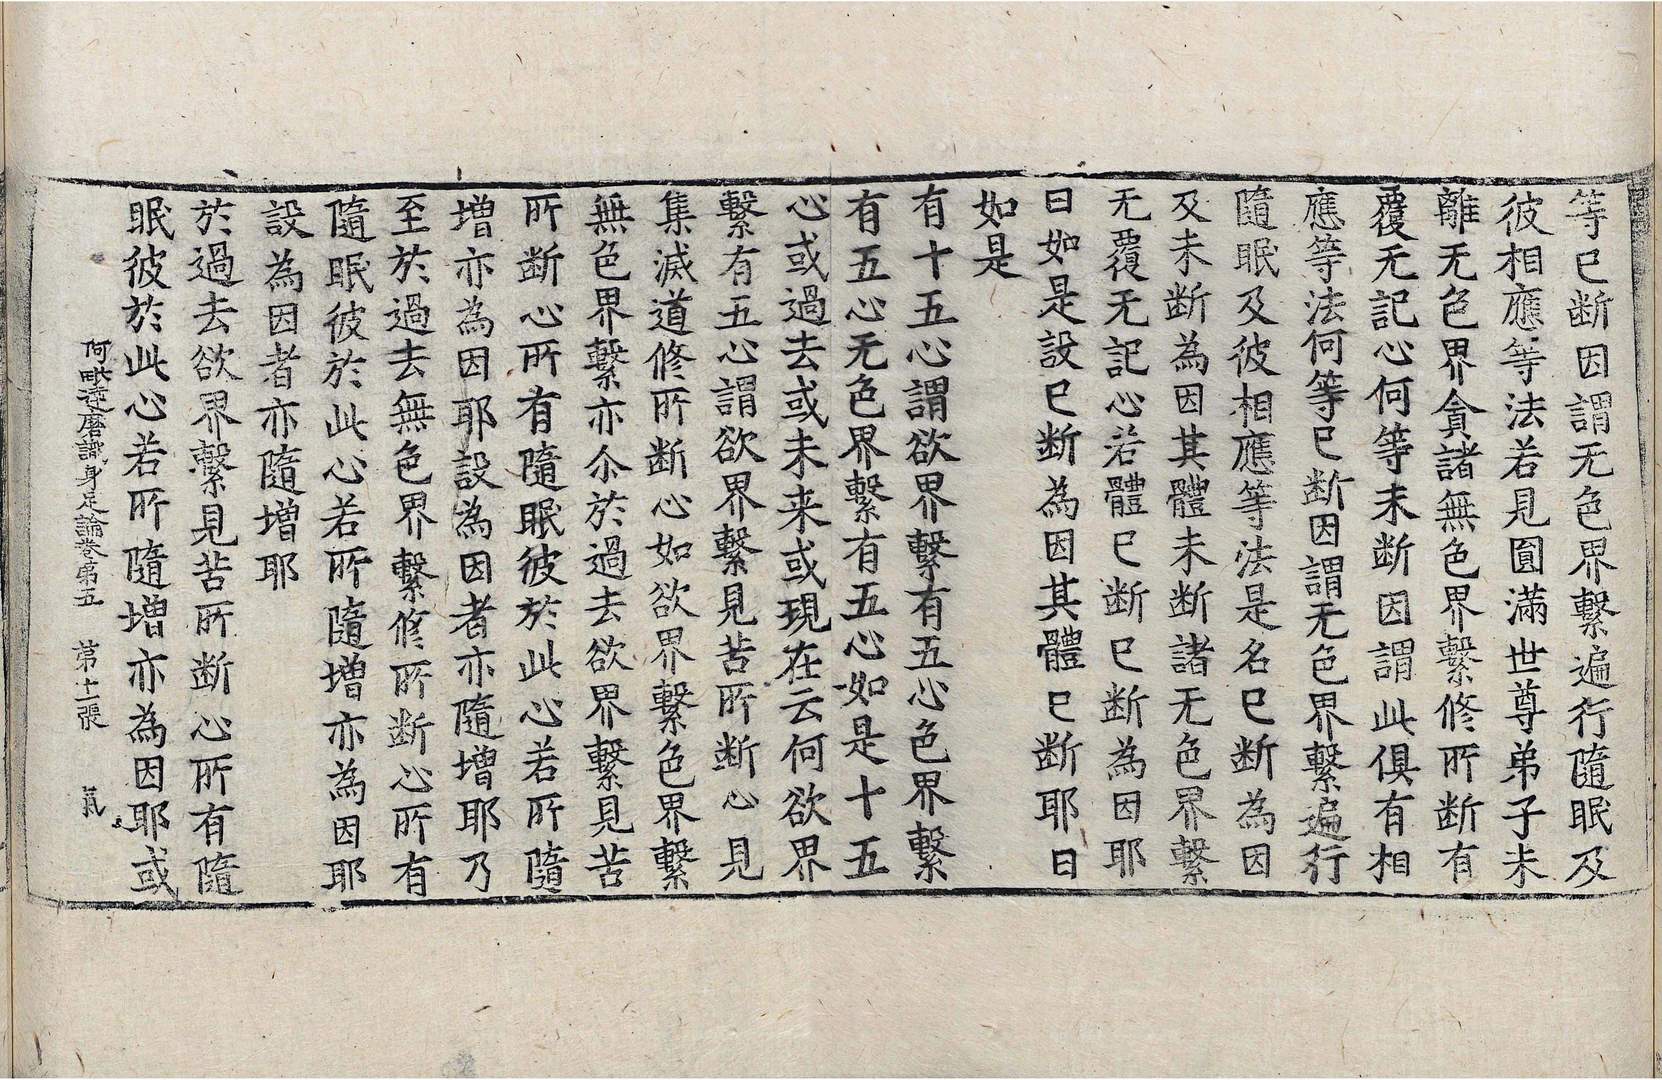 等已断因謂无色界繫遍行隨眠及
彼相應等法若見圓滿世尊弟子未
離无色界貪諸無色界繫修所断有
覆无記心何等未断因謂此俱有相
應等法何等已断因謂无色界繫遍行
隨眠及彼相應等法是名已断為因
及未断為因其體未断諸无色界繫
无覆无記心若體已断已断為因耶
曰如是設已断為因其體已断耶曰
如是
有十五心謂欲界繫有五心色界繫
有五心无色界繫有五心如是十五
心或過去或未来或現在云何欲界
繫有五心謂欲界繫見苦所断心見
集滅道修所断心如欲界繫色界繫
無色界繫亦尒於過去欲界繫見苦
所断心所有隨眠彼於此心若所隨
增亦為因耶設為因者亦隨增耶乃
至於過去無色界繫修所断心所有
隨眠彼於此心若所隨增亦為因耶
設為因者亦隨增耶
於過去欲界繫見苦所断心所有隨
眠彼於此心若所隨增亦為因耶或
阿毗達磨識身足論卷第五 第十一張 氣